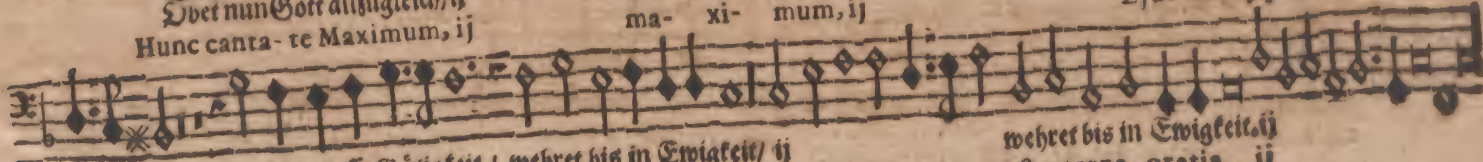 Lobet nun Gott allzugleich/ ij
Hunc canta- te Maximum, ij ma- xi- mum, ij
Gütigkeit / wehret bis in Ewigkeit/ ij wehret bis in Ewigkeit, ij
gratia ij